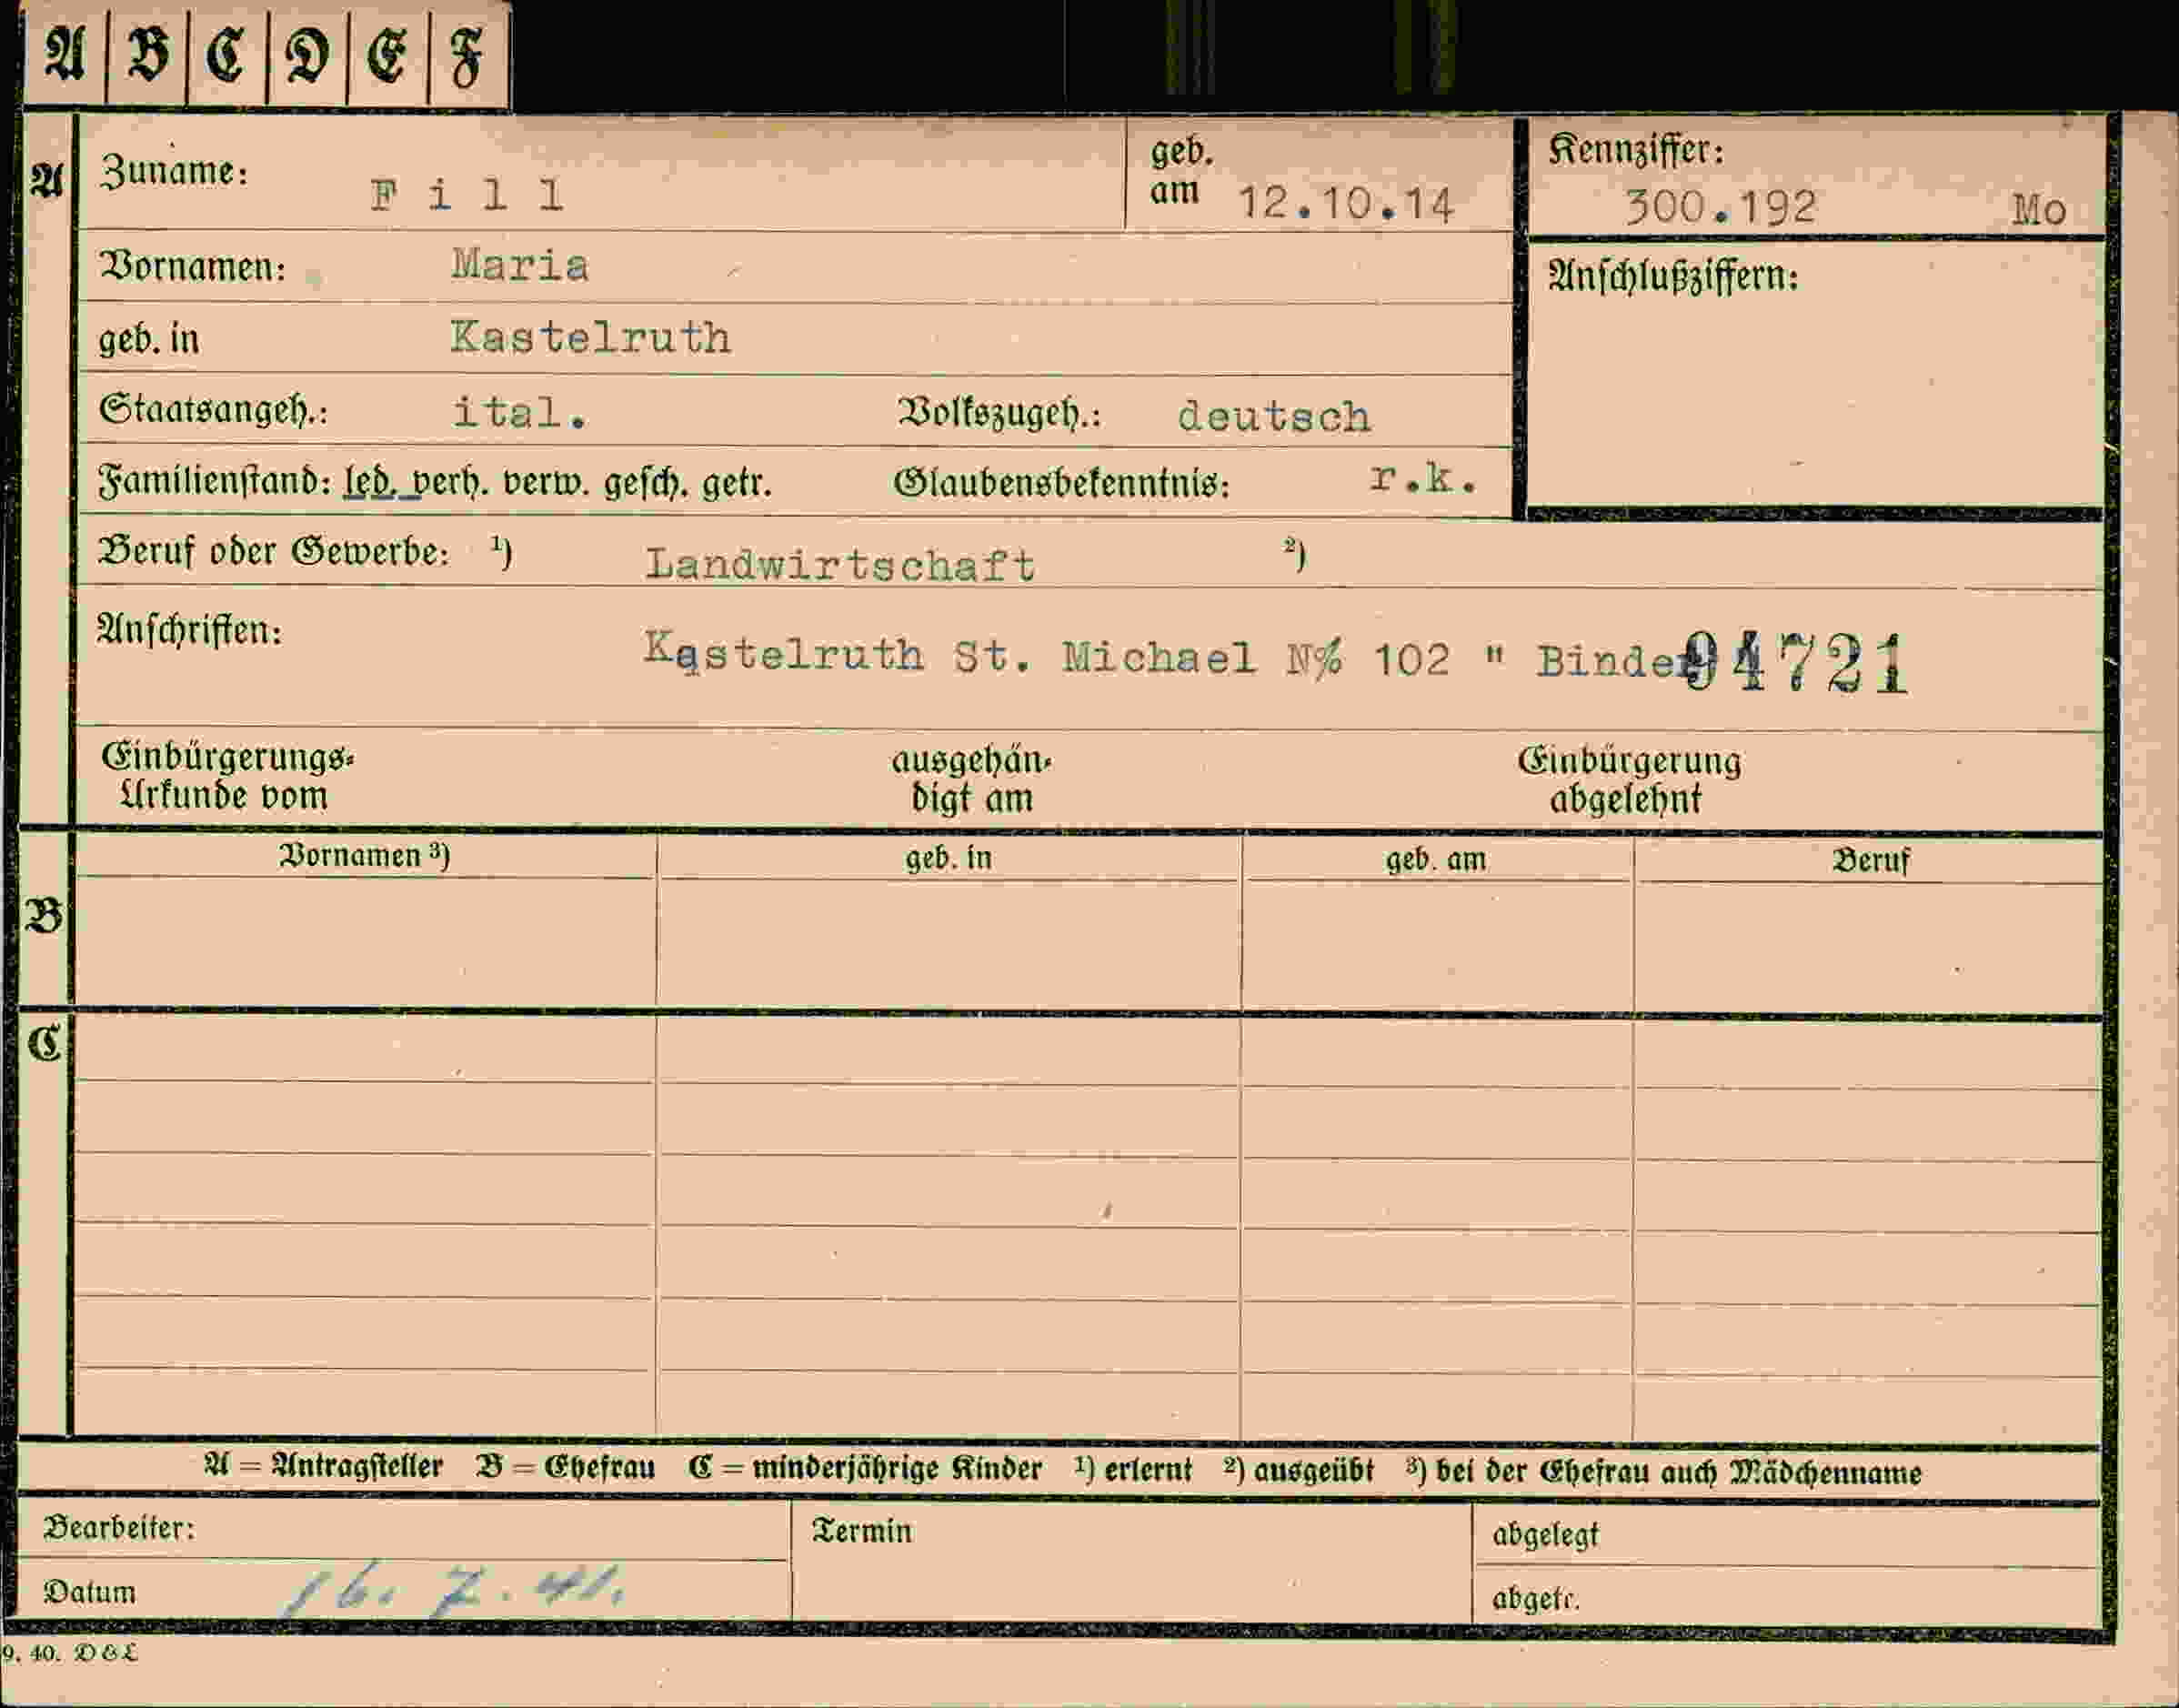 A B C D E F
A Zuname: Fill geb. am 12.10.14 Kennziffer: 300.192 Mo
Vornamen: Maria Anschlußziffern:
geb. in Kastelruth
Staatsangeh.: ital. Volkszugeh.: deutsch
Familienstand: led. verh. verw. gesch. getr. Glaubensbekenntnis: r.k.
Beruf oder Gewerbe: ¹) Landwirtschaft ²)
Anschriften: Kastelruth St. Michael N% 102 " Binder 94721
Einbürgerungs- ausgehän- Einbürgerung
Urkunde vom digt am abgelehnt
Vornamen ³) geb. in geb. am Beruf
B
C
A = Antragsteller B = Ehefrau C = minderjährige Kinder ¹) erlernt ²) ausgeübt ³) bei der Ehefrau auch Mädchenname
Bearbeiter: Termin abgelegt
Datum 16. 7. 41. abgetr.
9. 40. D&L